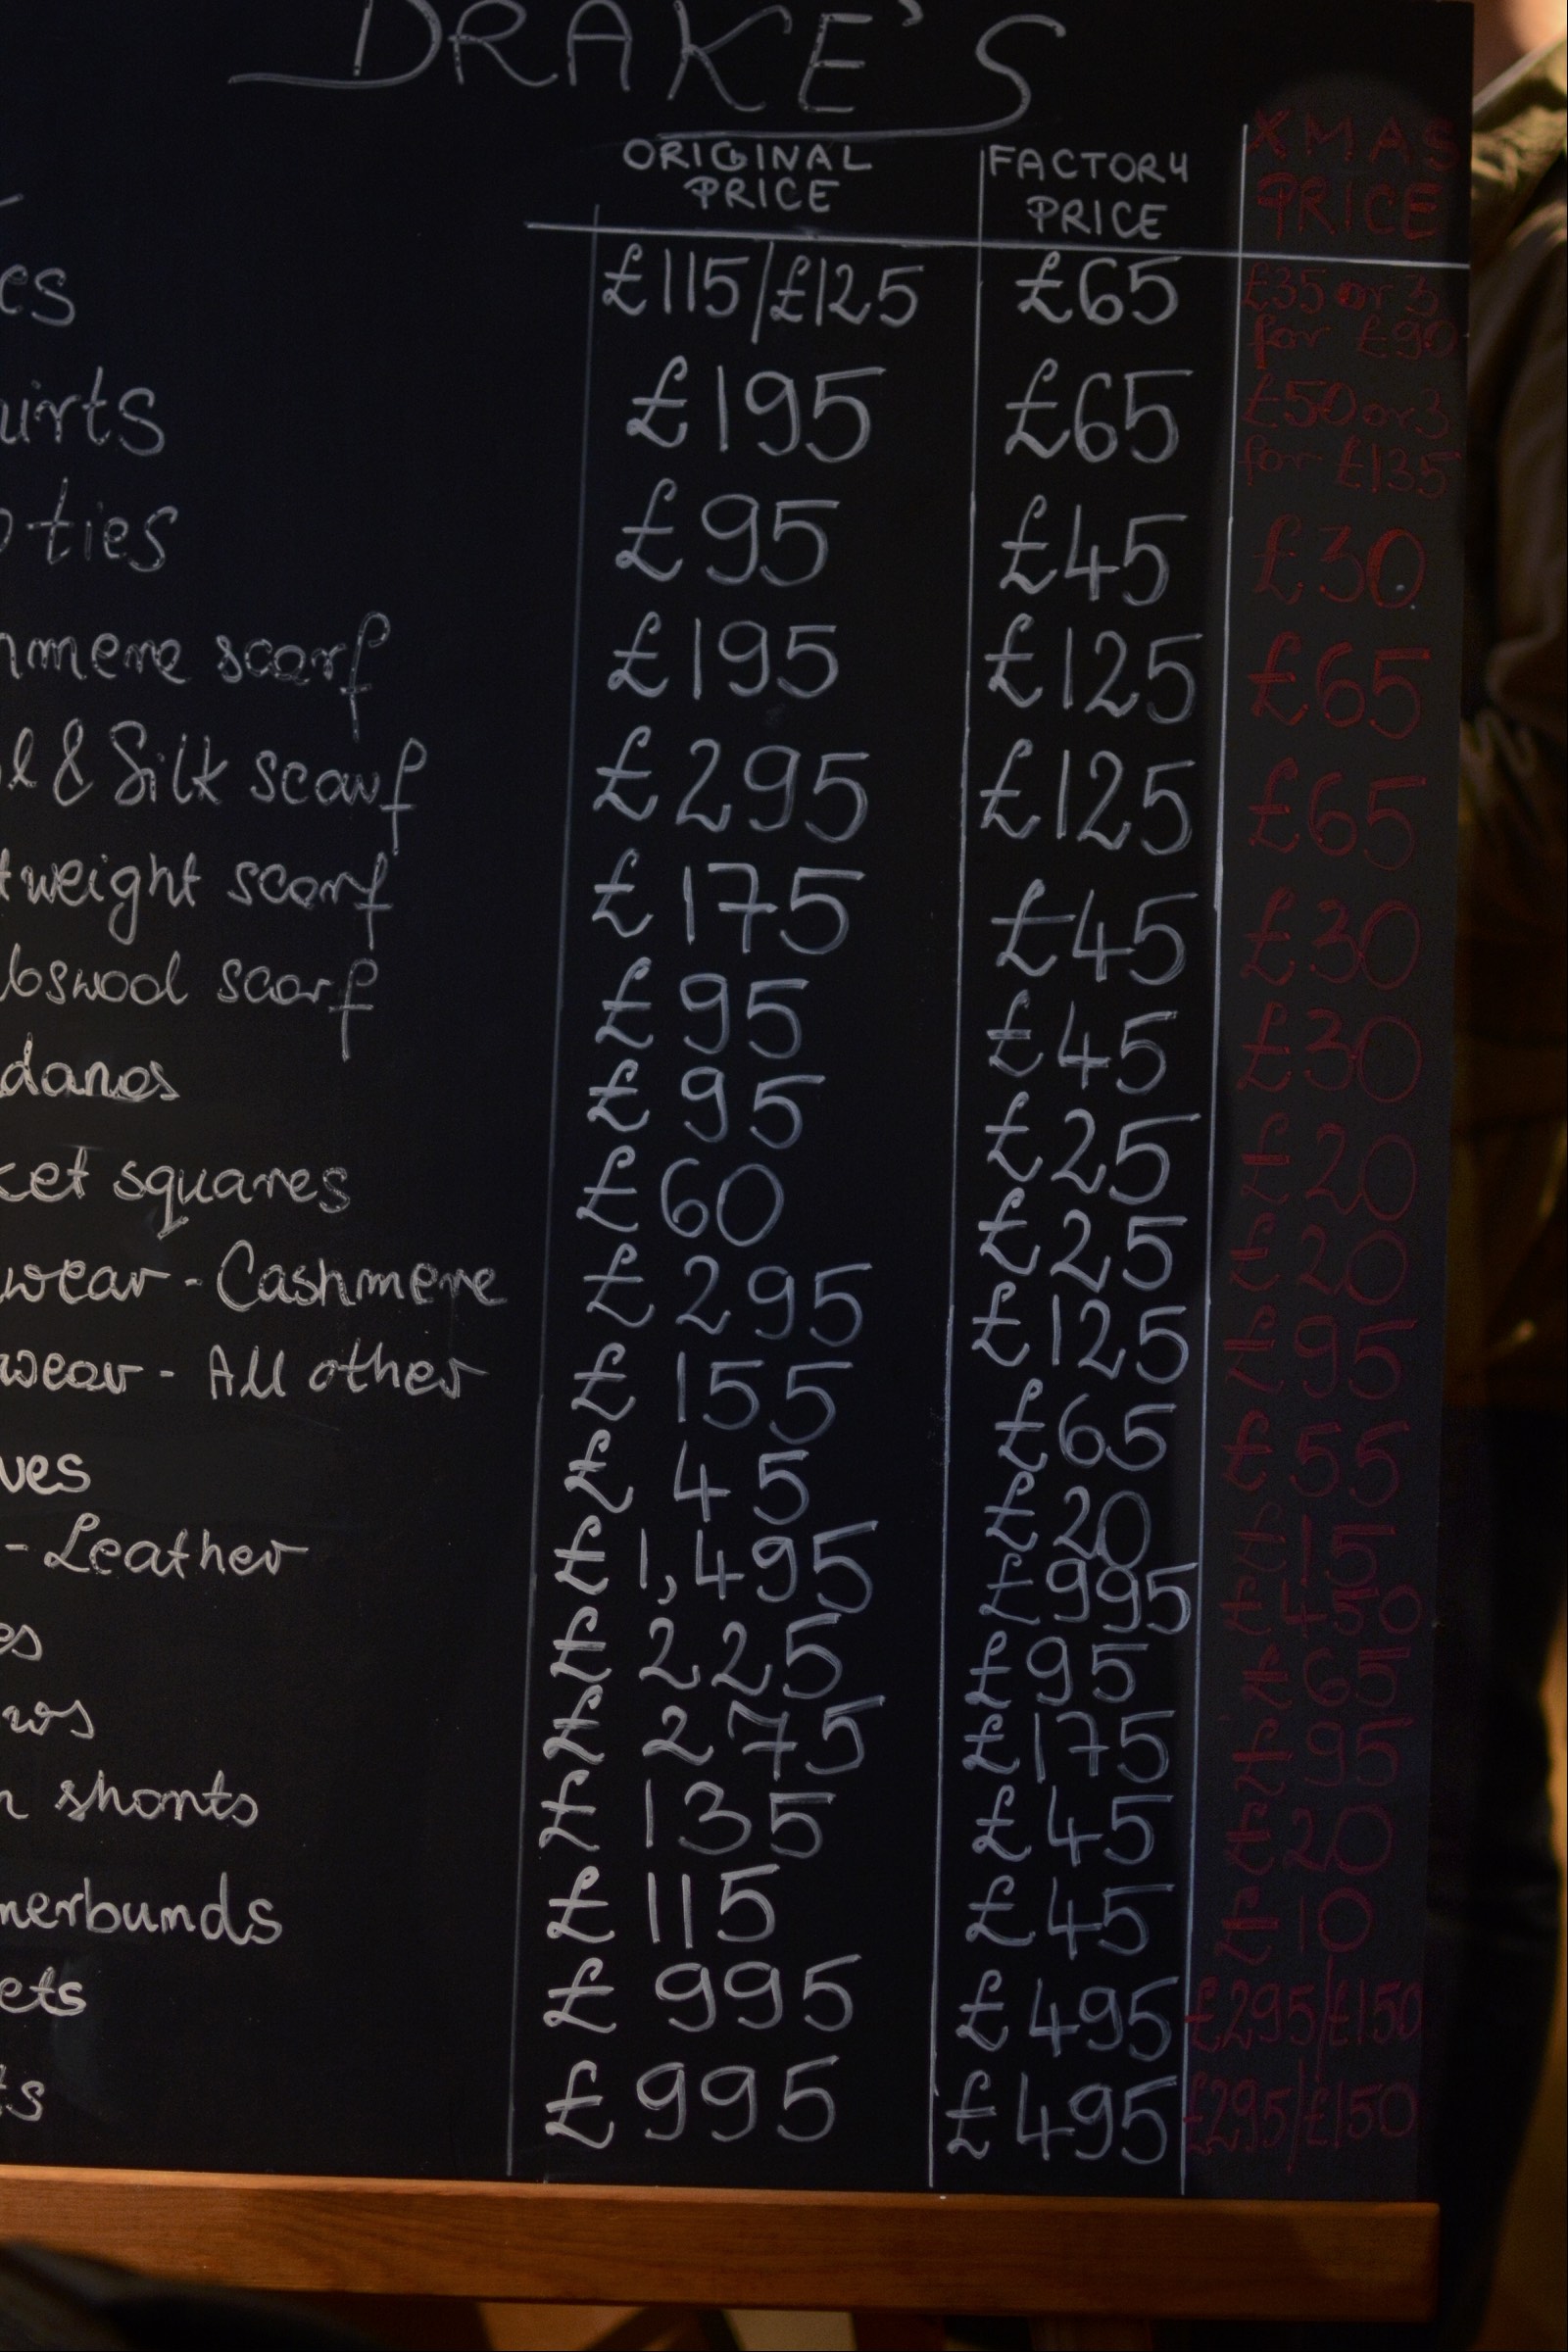 DRAKE'S
ORIGINAL PRICE FACTORY PRICE XMAS PRICE
es £115/£125 £65 £35 or 3 for £90
irts £195 £65 £50 or 3 for £135
ties £95 £45 £30
hmere scarf £195 £125 £65
l & Silk scarf £295 £125 £65
tweight scarf £175 £45 £30
bswool scarf £95 £45 £30
danas £95 £25 £20
ket squares £60 £25 £20
wear - Cashmere £295 £125 £95
wear - All other £155 £65 £55
ves £45 £20 £15
- Leather £1,495 £995 £450
es £225 £95 £65
ws £275 £175 £95
n shorts £135 £45 £20
merbunds £115 £45 £10
ets £995 £495 £295/£150
ts £995 £495 £295/£150